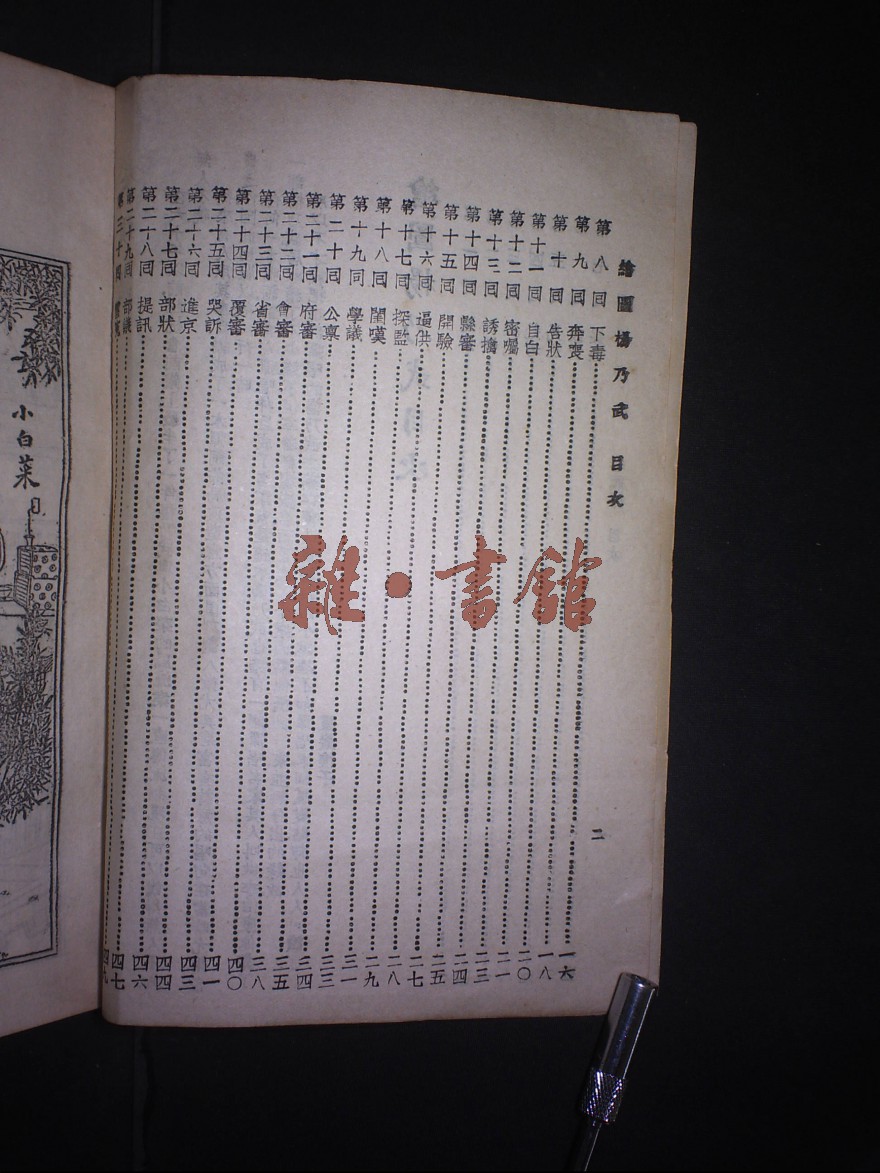 繪圖楊乃武 目次
二
第八回 下毒 一六
第九回 奔喪 一八
第十回 告狀 二〇
第十一回 自白 二一
第十二回 密囑 二三
第十三回 誘擒 二四
第十四回 縣審 二五
第十五回 開驗 二七
第十六回 逼供 二八
第十七回 探監 二九
第十八回 閨嘆 三一
第十九回 學議 三三
第二十回 公稟 三四
第二十一回 府審 三五
第二十二回 會審 三八
第二十三回 省審 四〇
第二十四回 覆審 四一
第二十五回 哭訴 四三
第二十六回 進京 四四
第二十七回 部狀 四六
第二十八回 提訊 四七
第二十九回 部議 四九
第三十回
小白菜
雜·書館